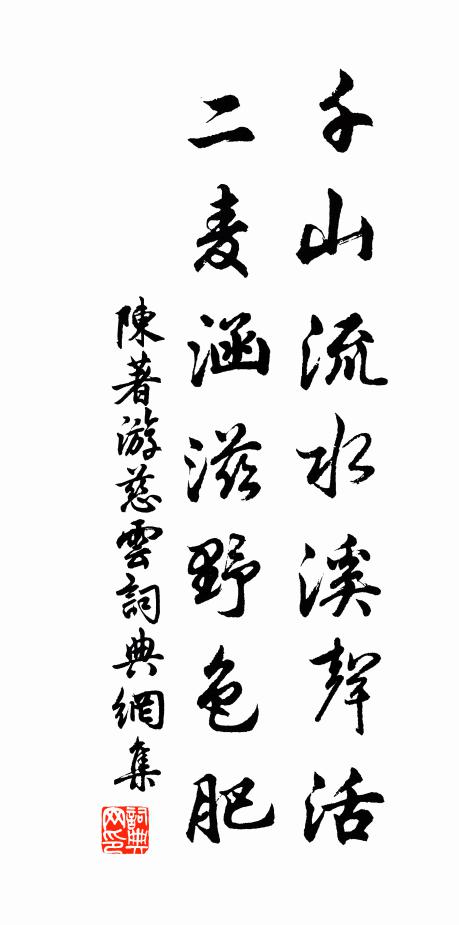 千山流水溪聲活
二麦涵滋野色肥
陳著游慈雲詞典網集
詞典
网印